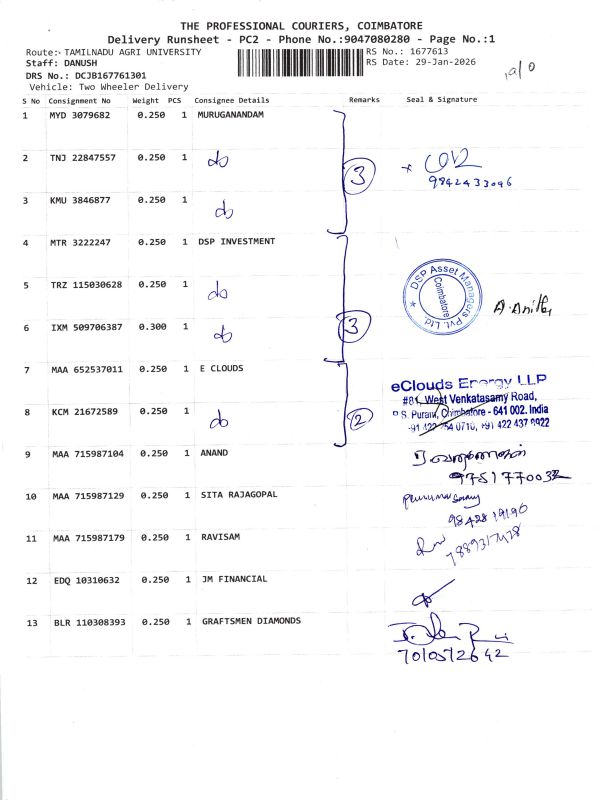 THE PROFESSIONAL COURIERS, COIMBATORE
Delivery Runsheet - PC2 - Phone No.:9047080280 - Page No.:1
Route:- TAMILNADU AGRI UNIVERSITY RS No.: 1677613
Staff: DANUSH RS Date: 29-Jan-2026
DRS No.: DCJB167761301
Vehicle: Two Wheeler Delivery
S No Consignment No Weight PCS Consignee Details Remarks Seal & Signature
1 MYD 3079682 0.250 1 MURUGANANDAM
2 TNJ 22847557 0.250 1 do
3
9842433096
3 KMU 3846877 0.250 1 do
4 MTR 3222247 0.250 1 DSP INVESTMENT
5 TRZ 115030628 0.250 1 do
DSP Asset Managers Pvt. Ltd.
Coimbatore
6 IXM 509706387 0.300 1 do
3
7 MAA 652537011 0.250 1 E CLOUDS
eClouds Energy LLP
#81, West Venkatasamy Road,
R.S. Puram, Coimbatore - 641 002. India
8 KCM 21672589 0.250 1 do
2
9 MAA 715987104 0.250 1 ANAND
9751770032
10 MAA 715987129 0.250 1 SITA RAJAGOPAL
9842819196
11 MAA 715987179 0.250 1 RAVISAM
7889317478
12 EDQ 10310632 0.250 1 JM FINANCIAL
13 BLR 110308393 0.250 1 GRAFTSMEN DIAMONDS
7010572642